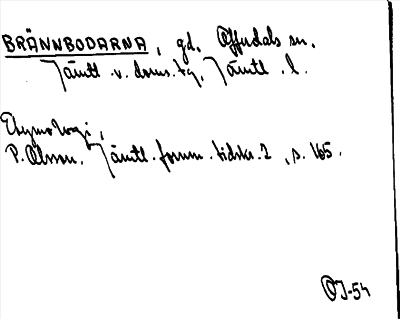 BRÄNNBODARNA, gd. Offerdals sn.
Jämtl. v. doms.tg, Jämtl. l.
Etymologi,
P. Olsson. Jämtl. fornm. tidskr. 2, s. 165.
OJ-54